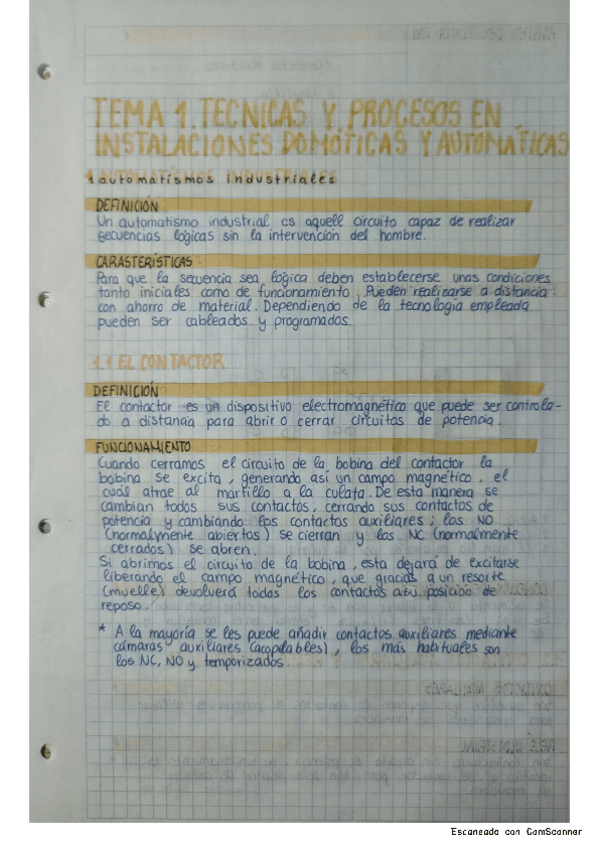 TEMA 1. TECNICAS Y PROCESOS EN
INSTALACIONES DOMÓTICAS Y AUTOMÁTICAS
1 automatismos industriales
DEFINICIÓN
Un automatismo industrial es aquell circuito capaz de realizar
secuencias lógicas sin la intervención del hombre.
CARASTERÍSTICAS
Para que la secuencia sea lógica deben establecerse unas condiciones
tanto iniciales como de funcionamiento. Pueden realizarse a distancia
con ahorro de material. Dependiendo de la tecnología empleada
pueden ser cableados y programados.
1.1 EL CONTACTOR
DEFINICIÓN
El contactor es un dispositivo electromagnético que puede ser controla-
do a distancia para abrir o cerrar circuitas de potencia.
FUNCIONAMIENTO
Cuando cerramos el circuito de la bobina del contactor la
bobina se excita, generando así un campo magnético, el
cuál atrae al martillo a la culata. De esta manera se
cambian todos sus contactos, cerrando sus contactos de
potencia y cambiando los contactos auxiliares; los NO
(normalmente abiertos) se cierran y los NC (normalmente
cerrados) se abren.
Si abrimos el circuito de la bobina, esta dejará de excitarse
liberando el campo magnético, que gracias a un resorte
(muelle) devolverá todos los contactos a su posición de
reposo.
* A la mayoría se les puede añadir contactos auxiliares mediante
cámaras auxiliares (acopilables), los más habituales son
los NC, NO y temporizados.
Escaneado con CamScanner